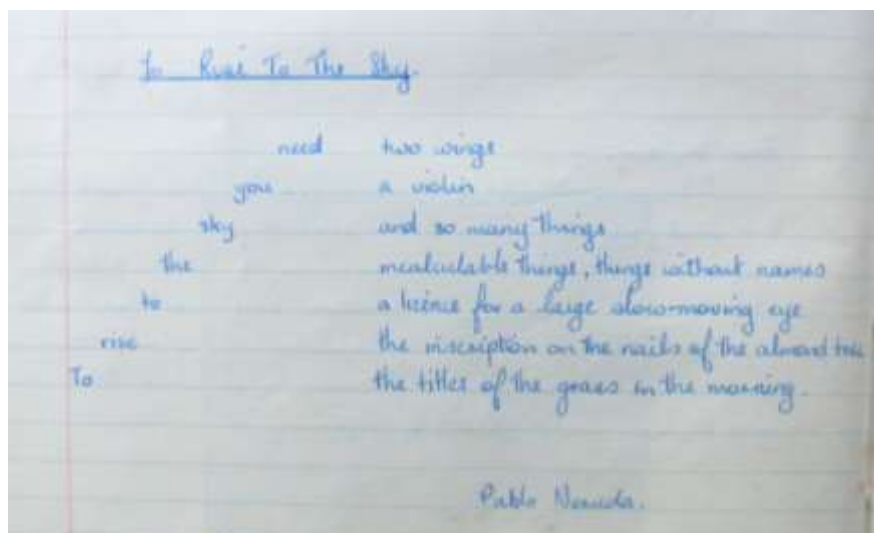 To Rise To The Sky.
need two wings
you a violin
sky and so many things
the incalculable things, things without names
to a licence for a large slow-moving eye
rise the inscription on the nails of the almond tree
To the titles of the grass in the morning.
Pablo Neruda.